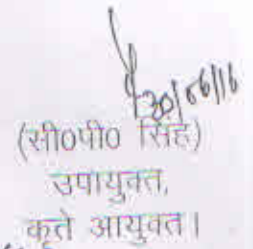 30/06/16
(सी०पी० सिंह)
उपायुक्त,
कृते आयुक्त।